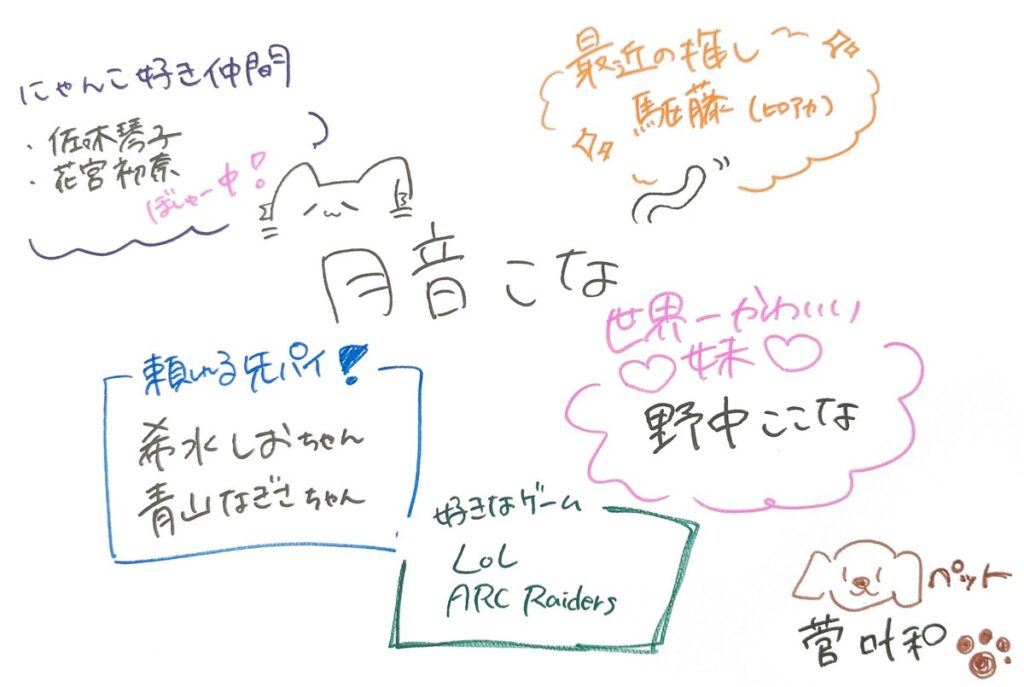 にゃんこ好き仲間
・佐々木琴子
・花宮初奈
ぼしゅー中!
最近の推し
駆藤(ヒロアカ)
月音こな
世界一かわいい
♡妹♡
野中ここな
頼れる先パイ!
希水しおちゃん
青山なぎさちゃん
好きなゲーム
LoL
ARC Raiders
ペット
菅叶和